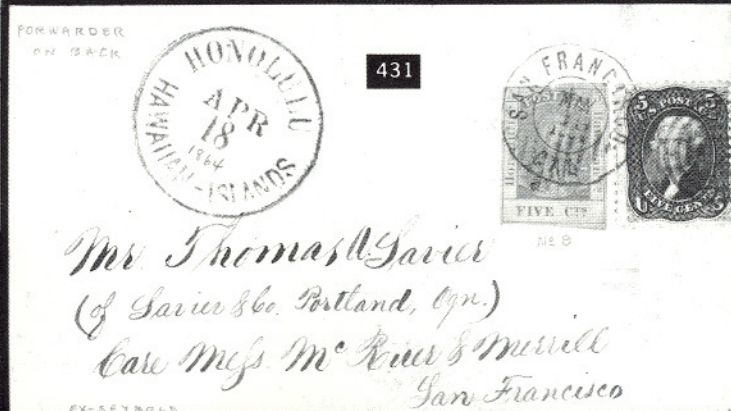 FORWARDER
ON BACK
HONOLULU
APR
18
1864
HAWAIIAN-ISLANDS
431
SAN FRANCISCO
HONOLULU
POSTAGE
FIVE Cts
No 8
5 5
U.S. POSTAGE
FIVE CENTS
U S
Mr. Thomas A. Savier
(of Savier & Co. Portland, Ogn.)
Care Mess. Mc Ruer & Merrill
San Francisco
EX-SEYBOLD